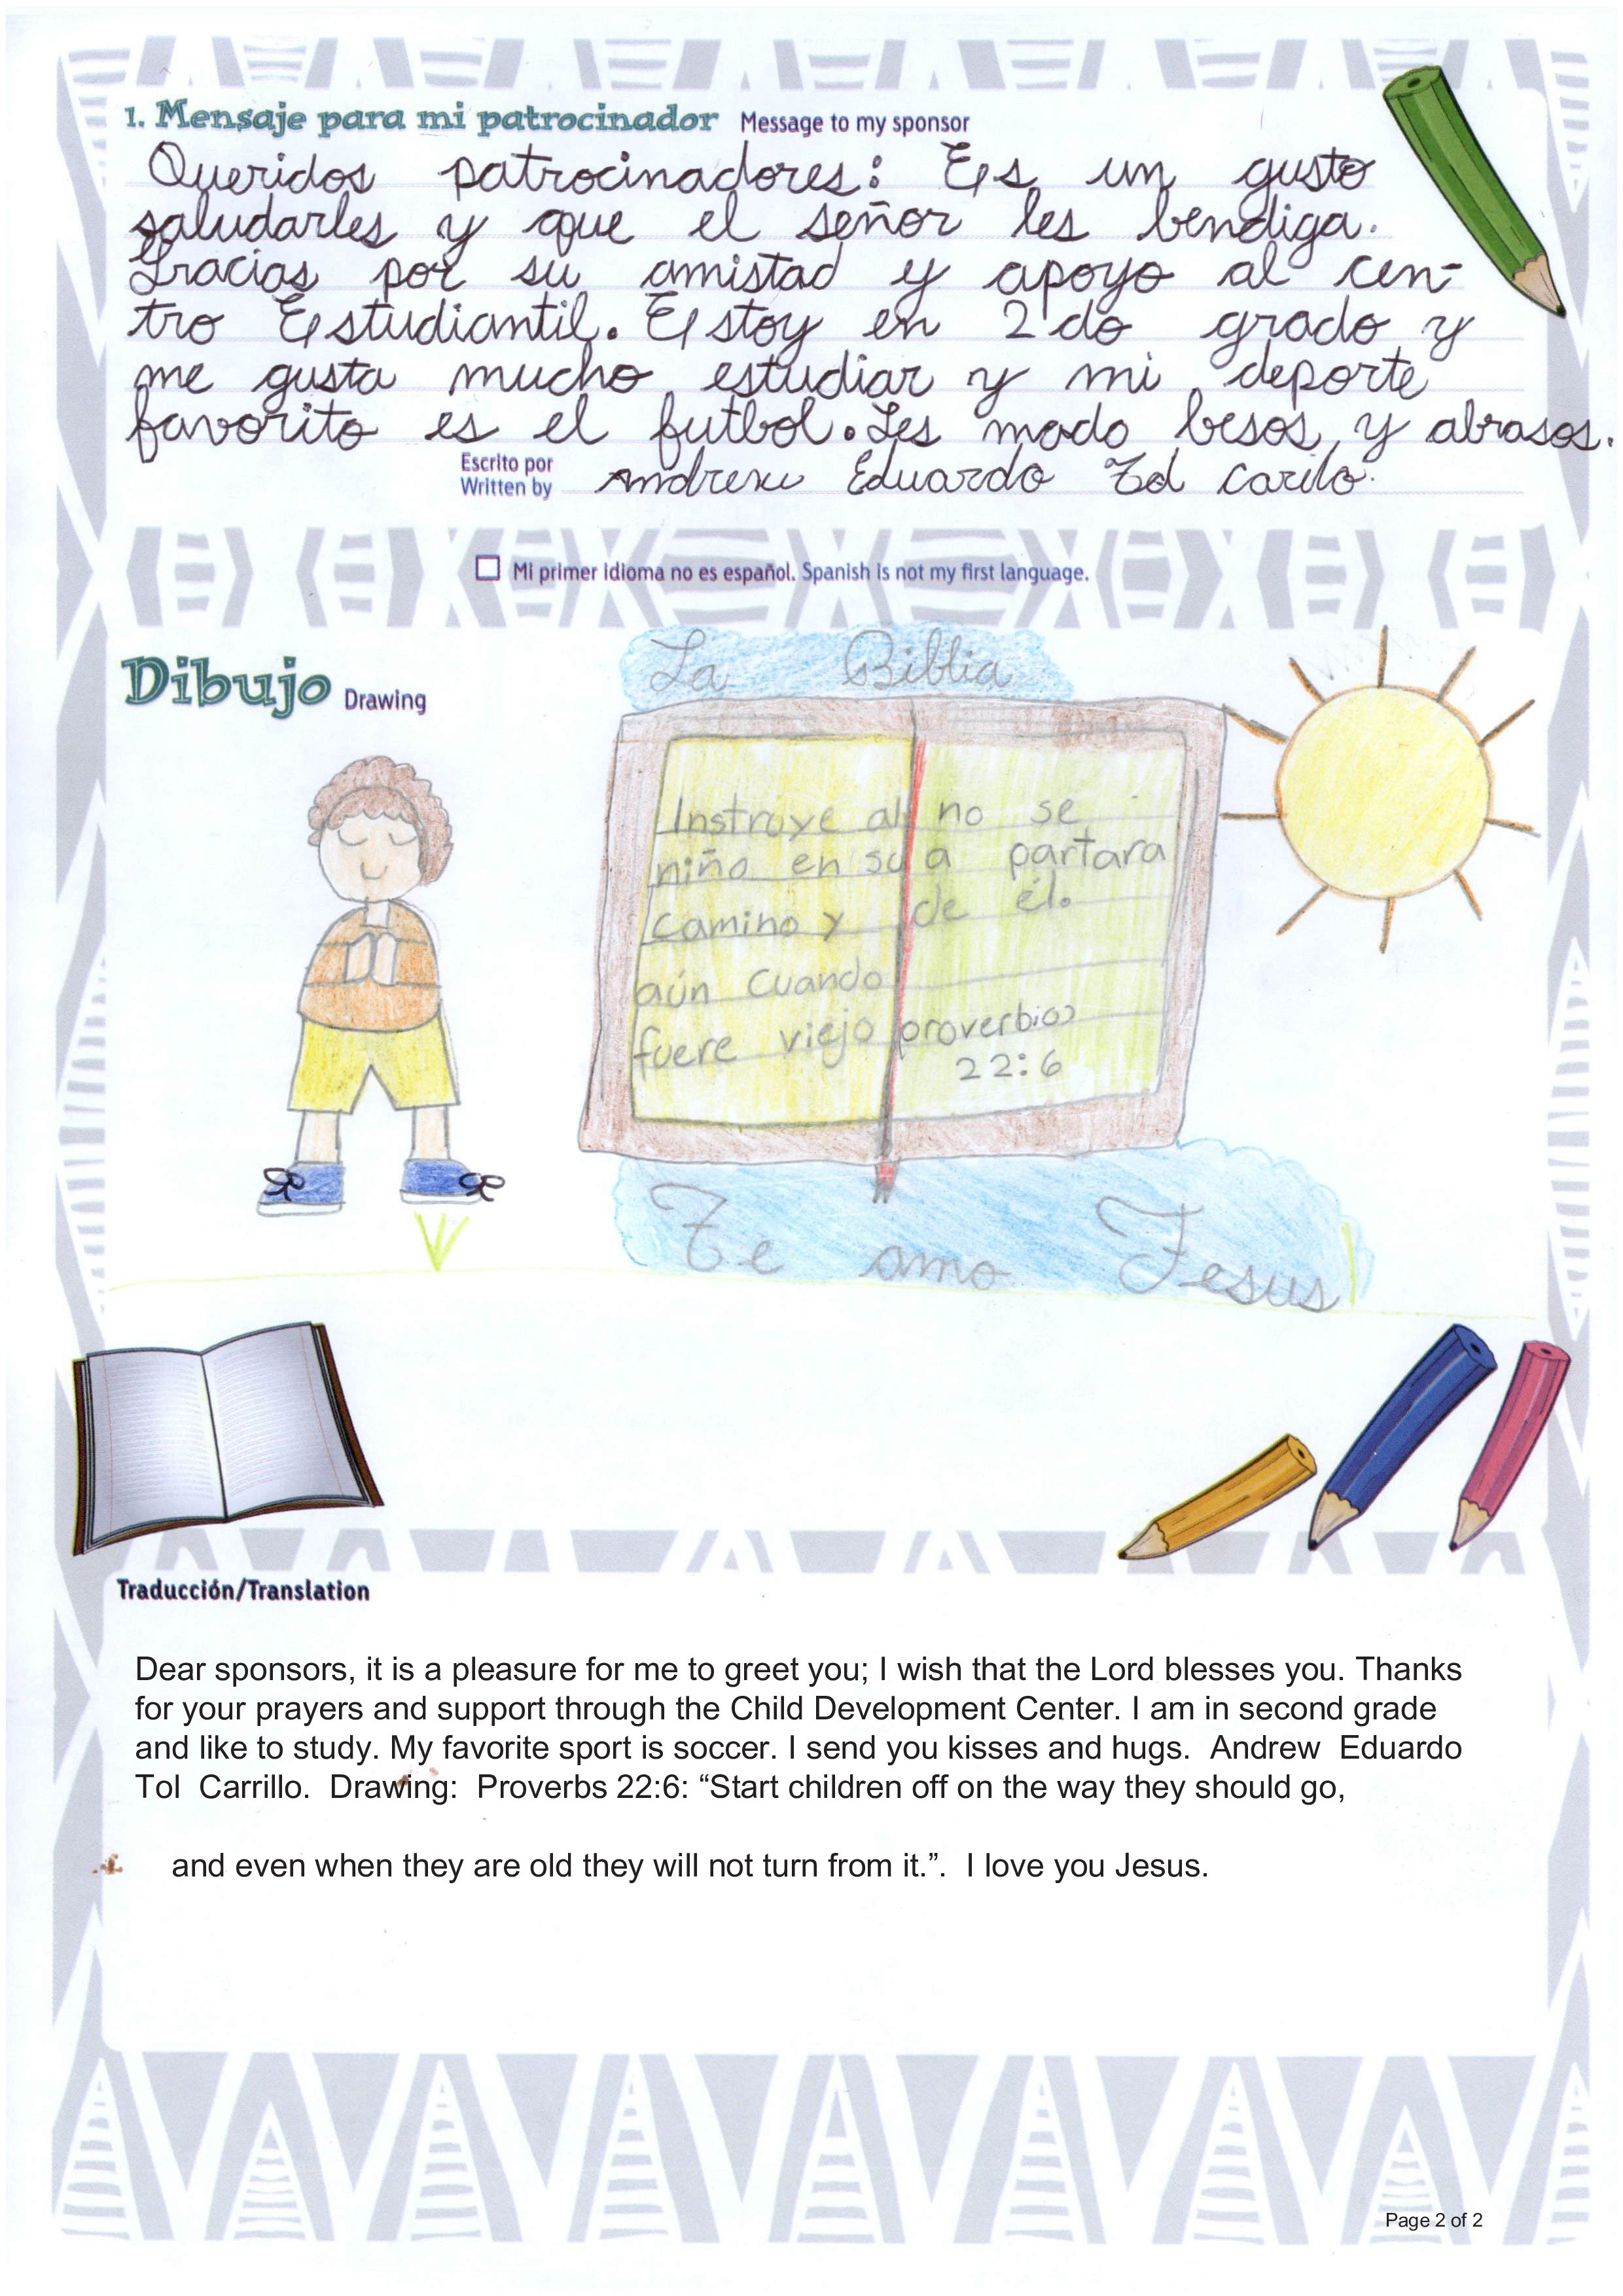 1. Mensaje para mi patrocinador Message to my sponsor
Queridos patrocinadores: Es un gusto
saludarles y que el señor les bendiga.
Gracias por su amistad y apoyo al cen-
tro Estudiantil. Estoy en 2do grado y
me gusta mucho estudiar y mi deporte
favorito es el futbol. Les mado besos y abrasos.
Escrito por
Written by
Andrew Eduardo Tol Carilo.
Mi primer idioma no es español. Spanish is not my first language.
Dibujo Drawing
La Biblia
Instruye al
niño en su
camino y
aún cuando
fuere viejo
no se
a partara
de él.
proverbios
22:6
Te amo Jesus
Traducción/Translation
Dear sponsors, it is a pleasure for me to greet you; I wish that the Lord blesses you. Thanks
for your prayers and support through the Child Development Center. I am in second grade
and like to study. My favorite sport is soccer. I send you kisses and hugs. Andrew Eduardo
Tol Carrillo. Drawing: Proverbs 22:6: “Start children off on the way they should go,
and even when they are old they will not turn from it.”. I love you Jesus.
Page 2 of 2